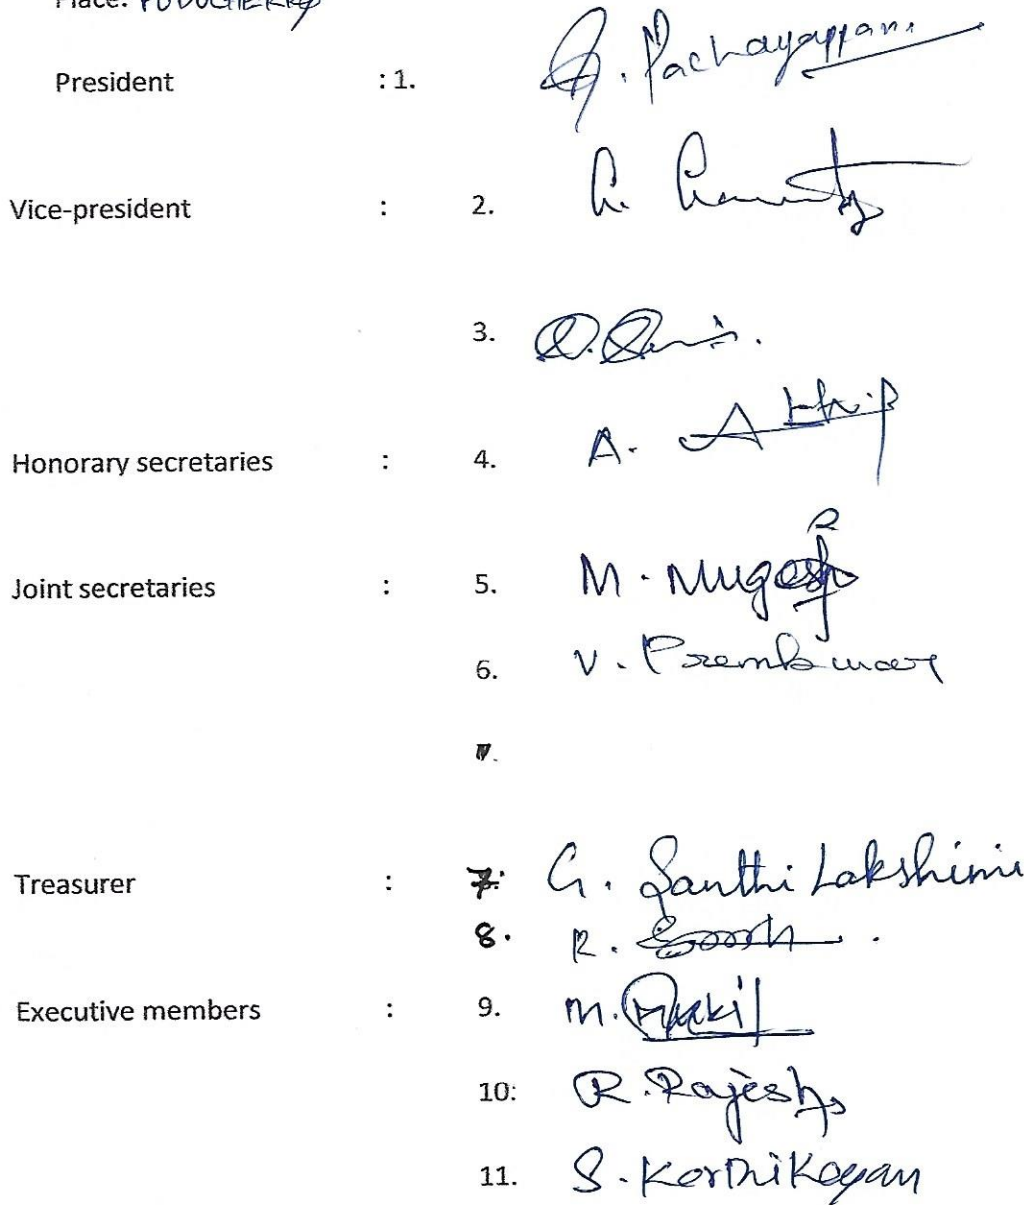 Place: PUDUCHERRY
President : 1. G. Pachayappan
Vice-president : 2.
3.
Honorary secretaries : 4. A.
Joint secretaries : 5. M. Mugesh
6. V. Premkumar
Treasurer : 7. G. Santhi Lakshimi
8. R.
Executive members : 9. M.
10: R. Rajesh
11. S. Karthikeyan